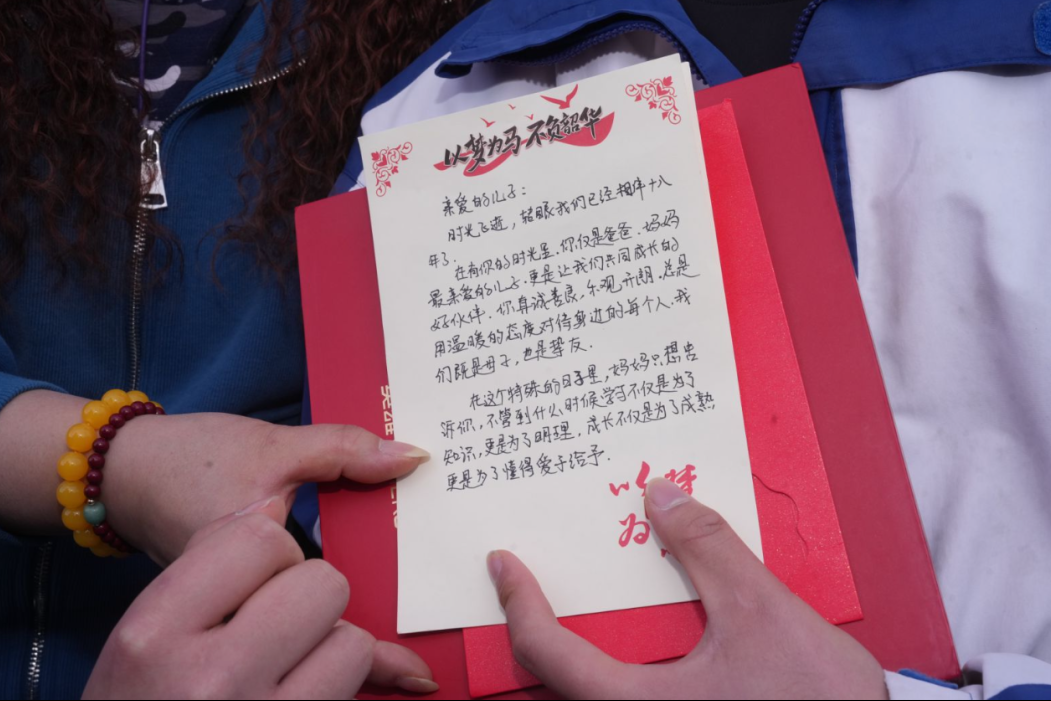 以梦为马 不负韶华
亲爱的儿子：
时光飞逝，转眼我们已经相伴十八
年了.
在有你的时光里.你仅是爸爸.妈妈
最亲爱的儿子.更是让我们共同成长的
好伙伴.你真诚善良,乐观开朗.总是
用温暖的态度对待身边的每个人.我
们既是母子，也是挚友.
在这个特殊的日子里，妈妈只想告
诉你，不管到什么时候学习不仅是为了
知识,更是为了明理，成长不仅是为了成熟,
更是为了懂得爱于给予.
以梦
为